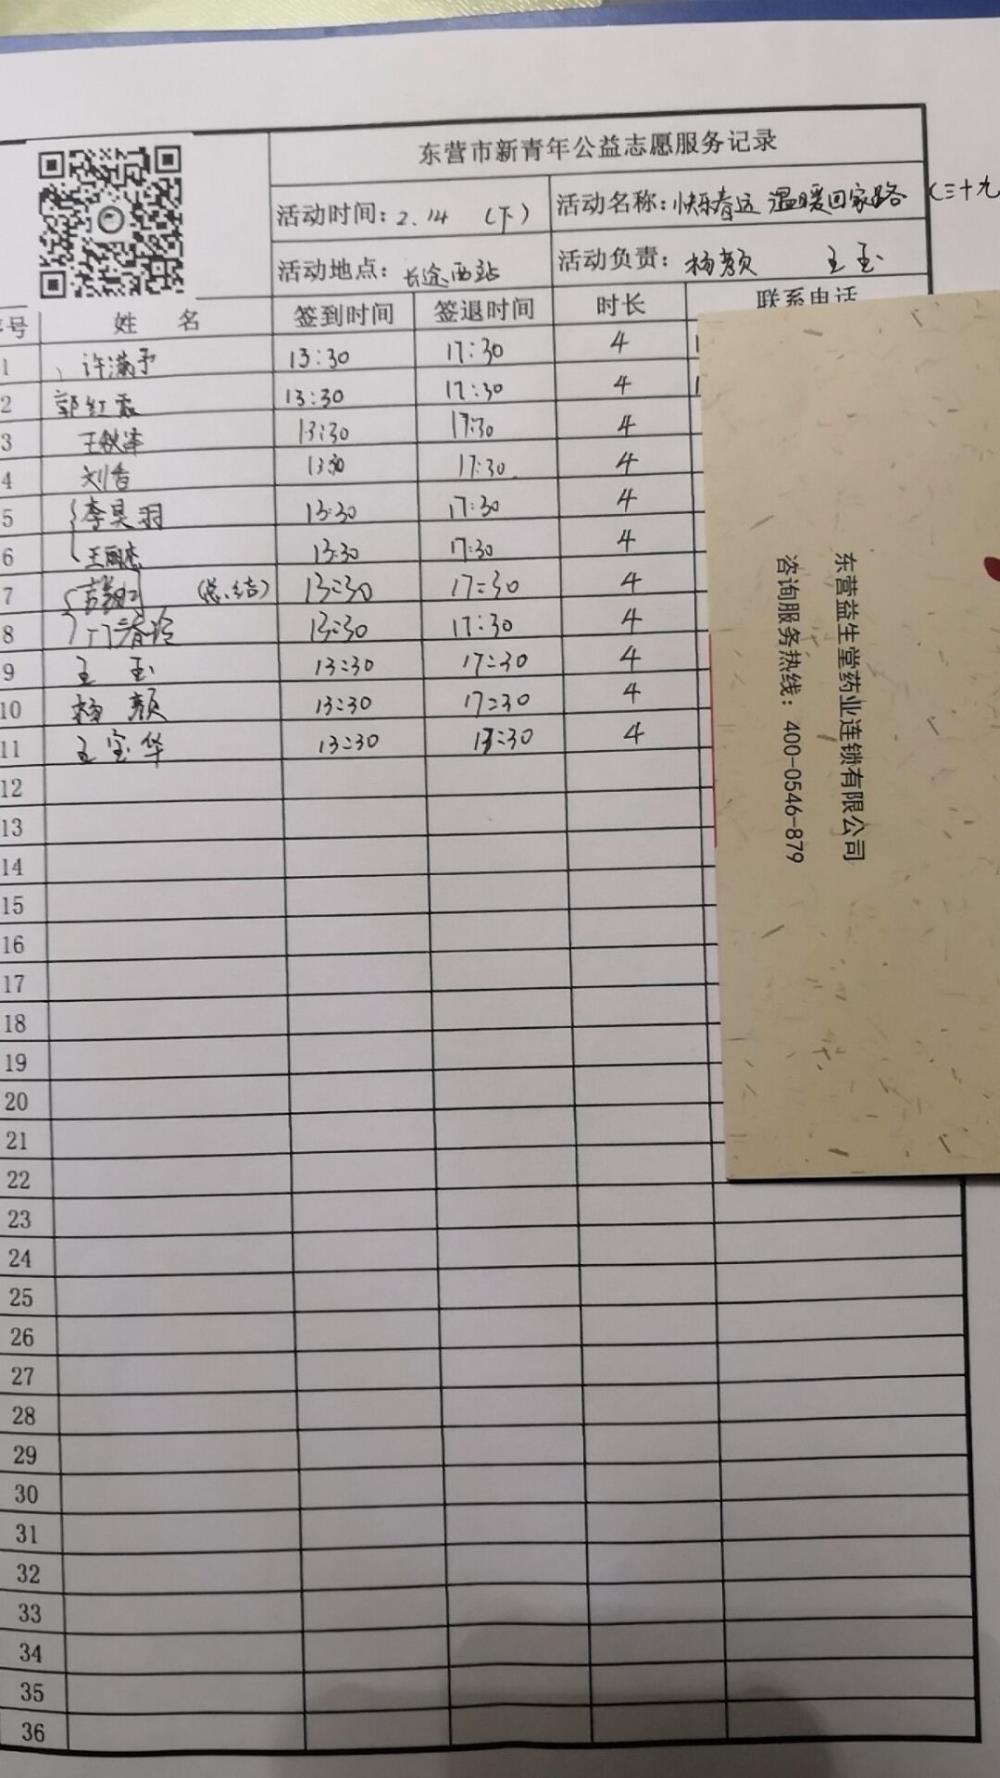 东营市新青年公益志愿服务记录
活动时间：2.14 （下） 活动名称：快乐春运 温暖回家路 （三十九
活动地点：长途西站 活动负责：杨颜 王玉
序号 姓 名 签到时间 签退时间 时长 联系电话
1 许满予 13:30 17:30 4
2 郭红霞 13:30 17:30 4
3 王 13:30 17:30 4
4 刘香 13:30 17:30 4
5 李昊羽 13:30 17:30 4
6 王丽杰 13:30 17:30 4
7 （总结） 13:30 17:30 4
8 13:30 17:30 4
9 王 玉 13:30 17:30 4
10 杨 颜 13:30 17:30 4
11 王宝华 13:30 17:30 4
12
13
14
15
16
17
18
19
20
21
22
23
24
25
26
27
28
29
30
31
32
33
34
35
36
东营益生堂药业连锁有限公司
咨询服务热线：400-0546-879